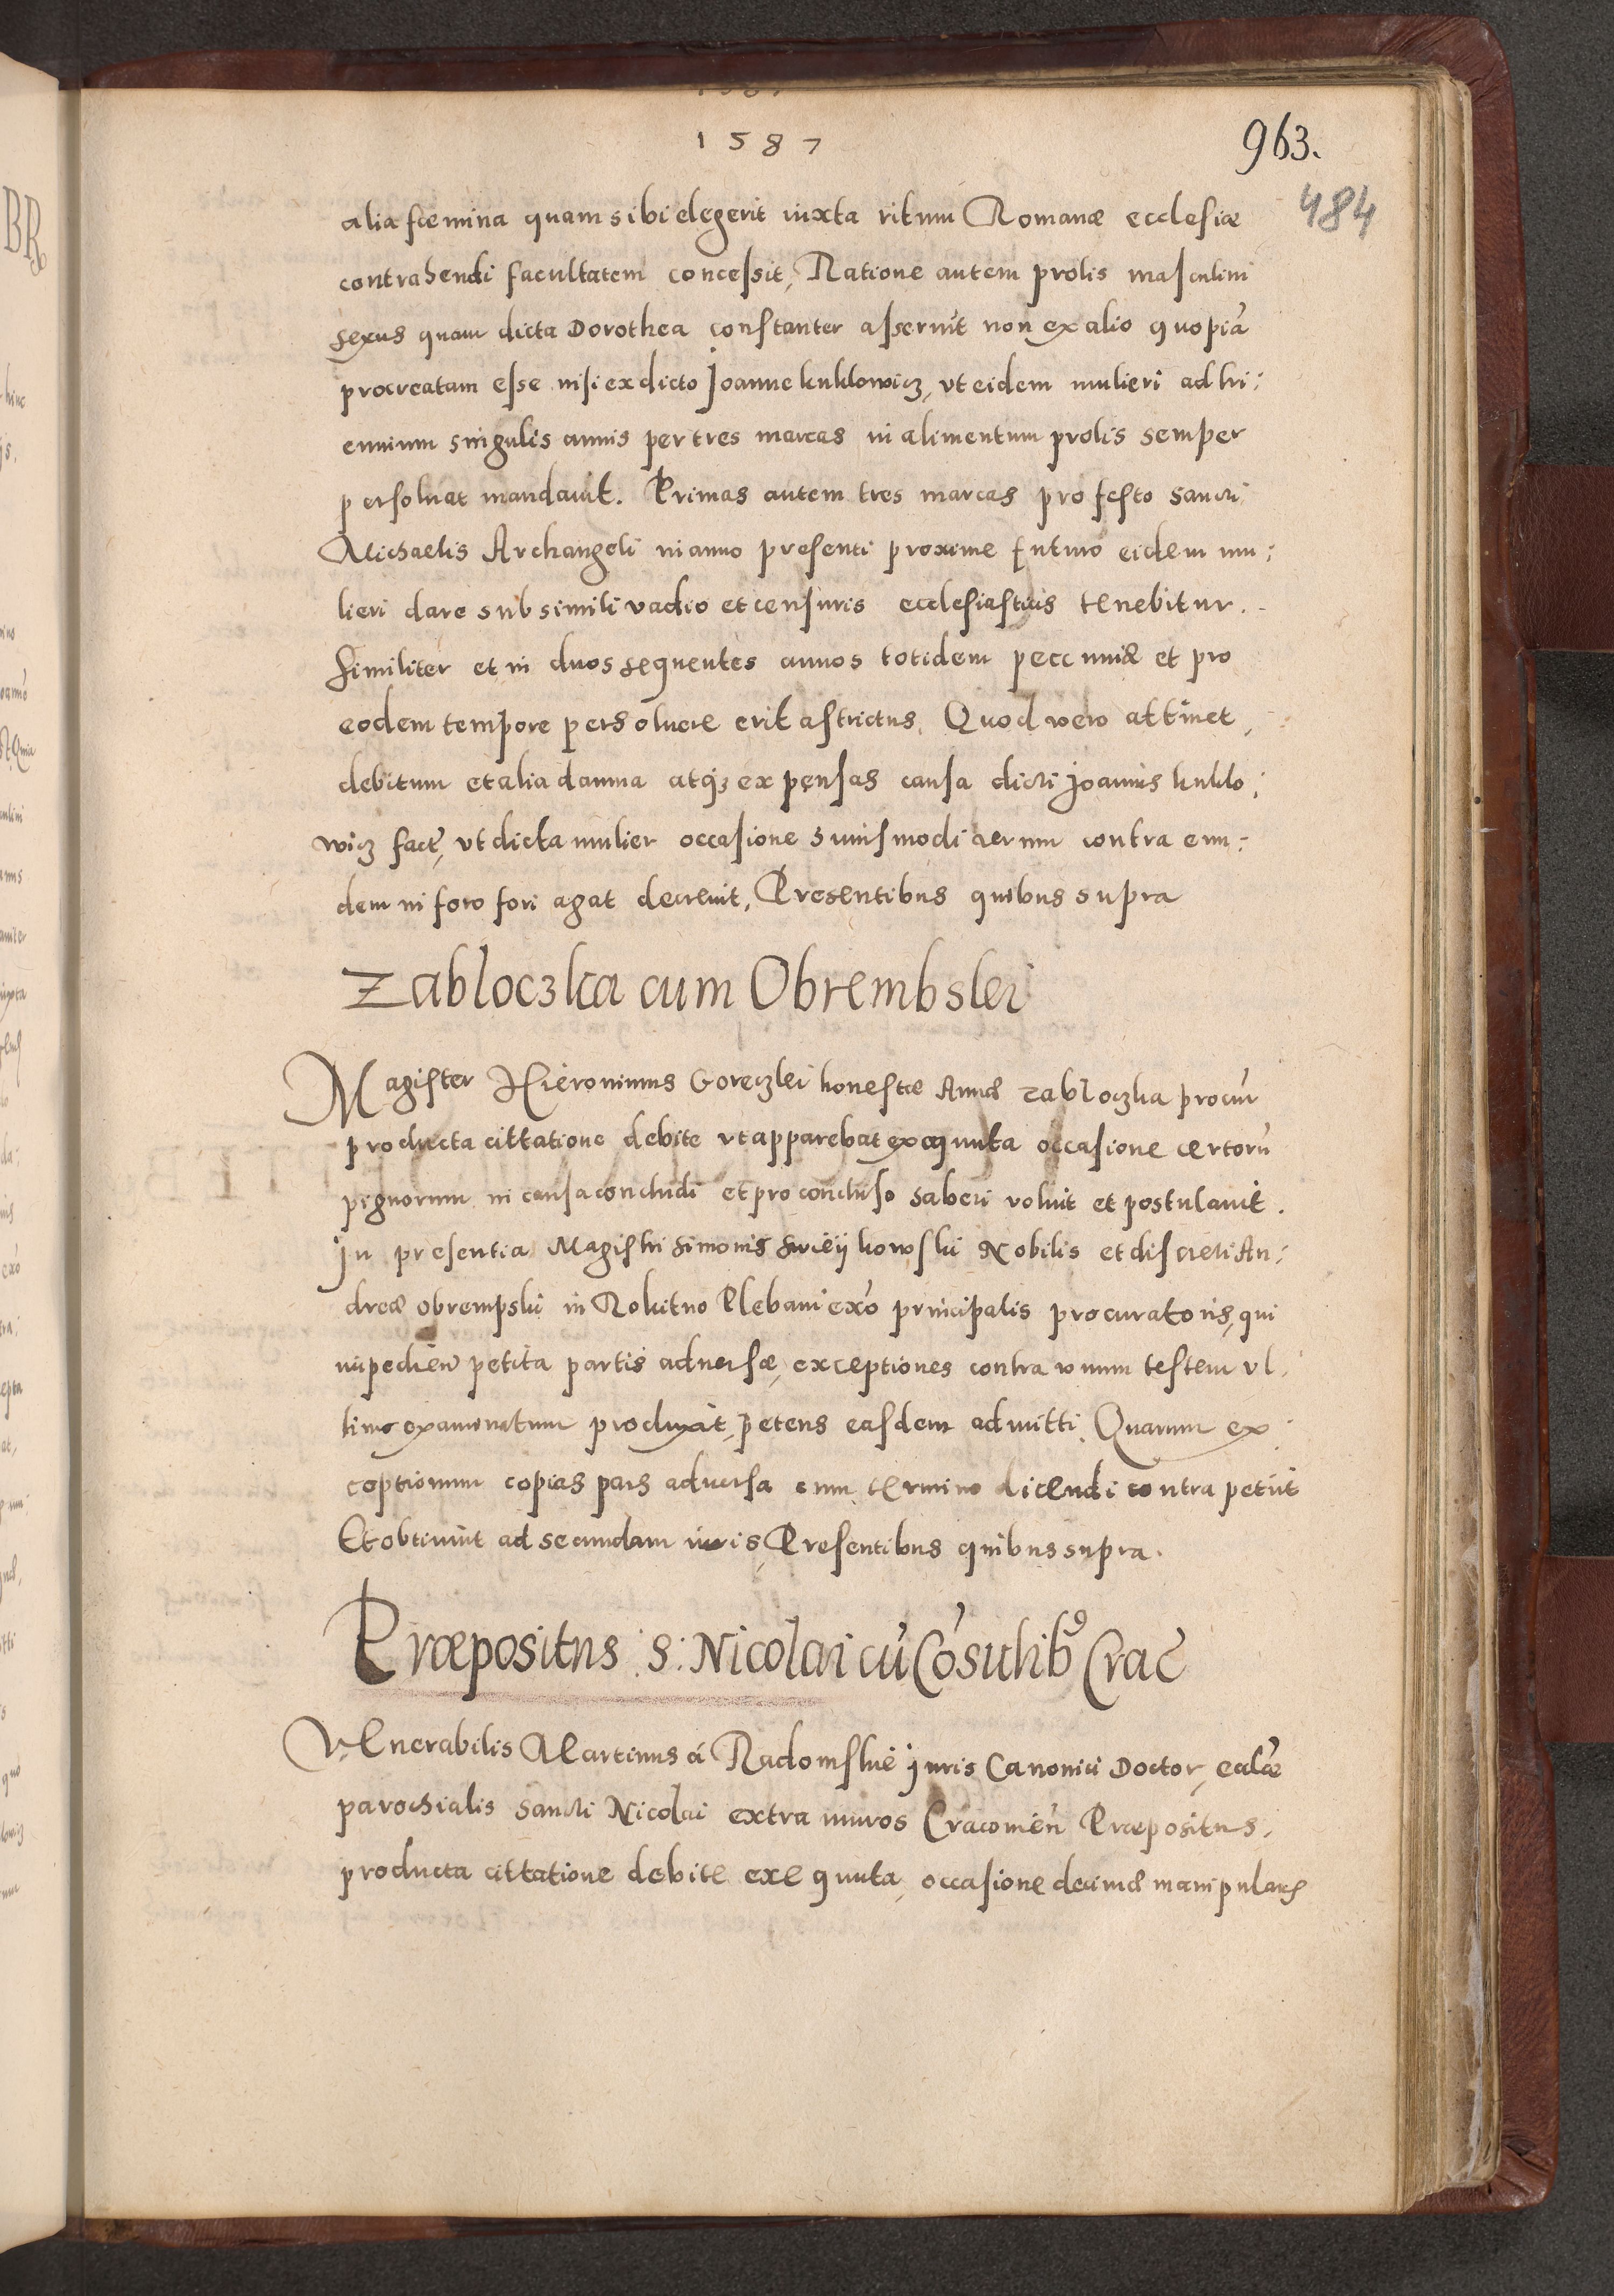 1587
963.
484
alia fœmina quam sibi elegerit iuxta ritum Romanæ ecclesiæ
contrahendi facultatem concessit, Ratione autem prolis masculini
sexus quam dicta Dorothea constanter asseruit non ex alio quopiã
procreatam esse nisi ex dicto Joanne kuklowicz, vt eidem mulieri ad tri:
ennium singulis annis per tres marcas in alimentum prolis semper
persoluat mandauit. Primas autem tres marcas pro festo sancti
Michaelis Archangeli in anno presenti proxime futuro eidem mu:
lieri dare sub simili vadio et censuris ecclesiasticis tenebitur.
Similiter et in duos sequentes annos totidem pecuniæ et pro
eodem tempore persoluere erit astrictus. Quod vero attinet,
debitum et alia damna atq3 expensas causa dicti Joannis kuklo,
wicz factę, vt dicta mulier occasione huiusmodi rerum contra eun:
dem in foro fori agat decreuit, Presentibus quibus supra
Zabloczka cum Obrembskei
Magister Hieronimus Goreczkei honestæ Annæ Zabloczka procur̃
producta cittatione debite vt apparebat exequuta occasione certorũ
pignorum in causa concludi et pro concluso haberi voluit et postulauit.
Jn presentia Magistri Simonis kowski Nobilis et discreti An:
dreæ Obrempski in Rokitno Plebani exõ principalis procuratoris, qui
impedien̄ petita partis aduersæ, exceptiones contra vnum testem vl,
timo examinatum produxit, petens easdem admitti. Quarum ex
ceptionum copias pars aduersa cum termino dicendi contra petiit
Et obtinuit ad secundam iuris, Presentibus quibus supra.
Præpositus S: Nicolai cũ Cõsulib9 Crac̄
Venerabilis Martinus á Radomskie Juris Canonici Doctor, eccl̄æ
parochialis sancti Nicolai extra muros Cracouien̄ Præpositus,
producta cittatione debite exequuta, occasione decimæ manipularis